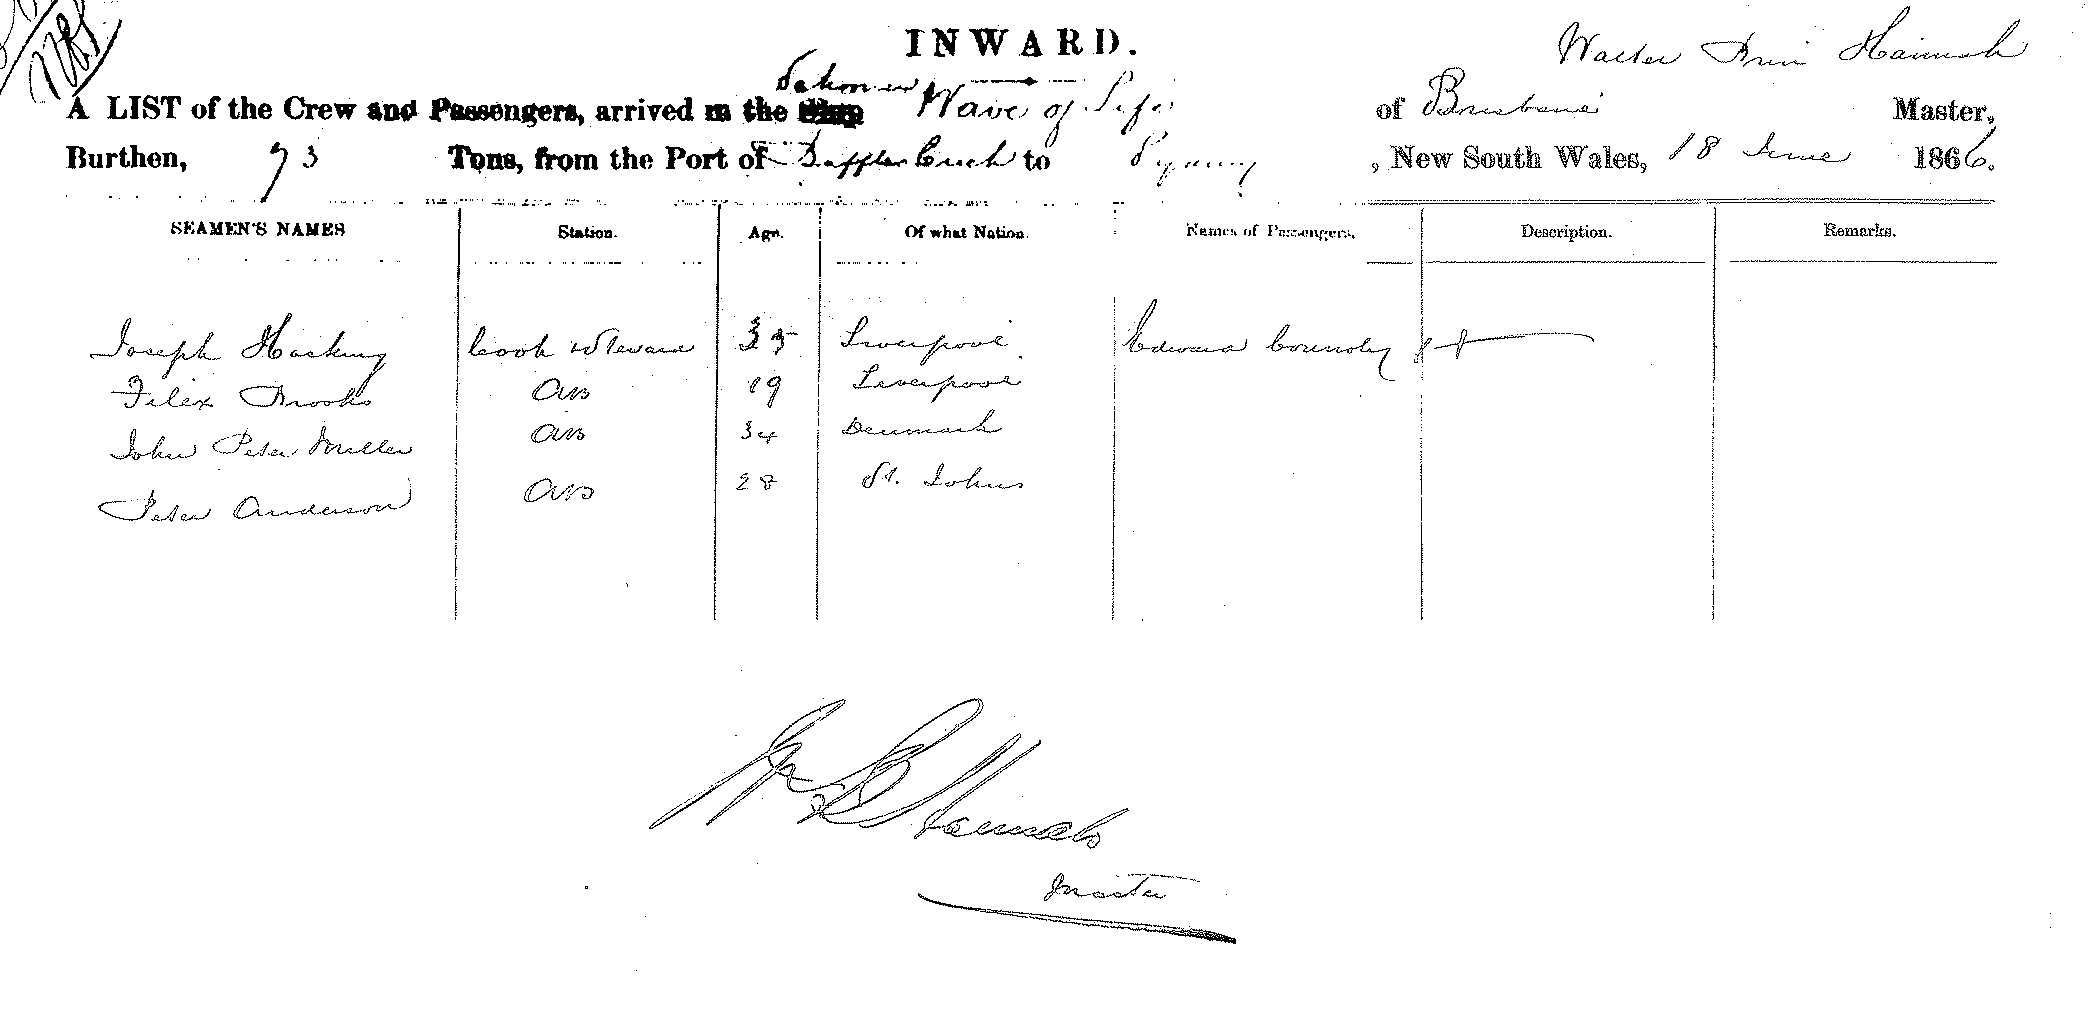 INWARD.
Walter Hannah
A LIST of the Crew and Passengers, arrived in the Ship Schooner Wave of Life of Brisbane Master,
Burthen, 73 Tons, from the Port of Creek to Sydney, New South Wales, 18 June 1866.
SEAMEN'S NAMES Station. Age. Of what Nation. Names of Passengers. Description. Remarks.
Joseph Hosking Cook & Steward 35 Liverpool Edward Connoley
Filex Brooks AB 19 Liverpool
John Peter Miller AB 34 Denmark
Peter Anderson AB 28 St. Johns
Hannah
Master